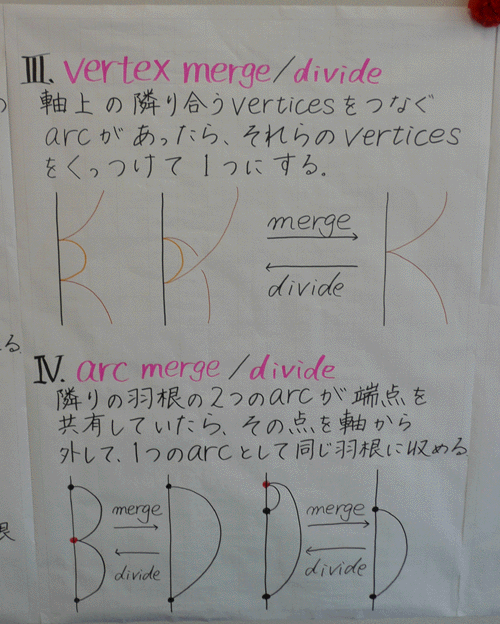 III. vertex merge/divide
軸上の隣り合うverticesをつなぐ
arcがあったら、それらのvertices
をくっつけて1つにする.
merge
divide
IV. arc merge/divide
隣りの羽根の2つのarcが端点を
共有していたら、その点を軸から
外して、1つのarcとして同じ羽根に収める
merge
divide
merge
divide